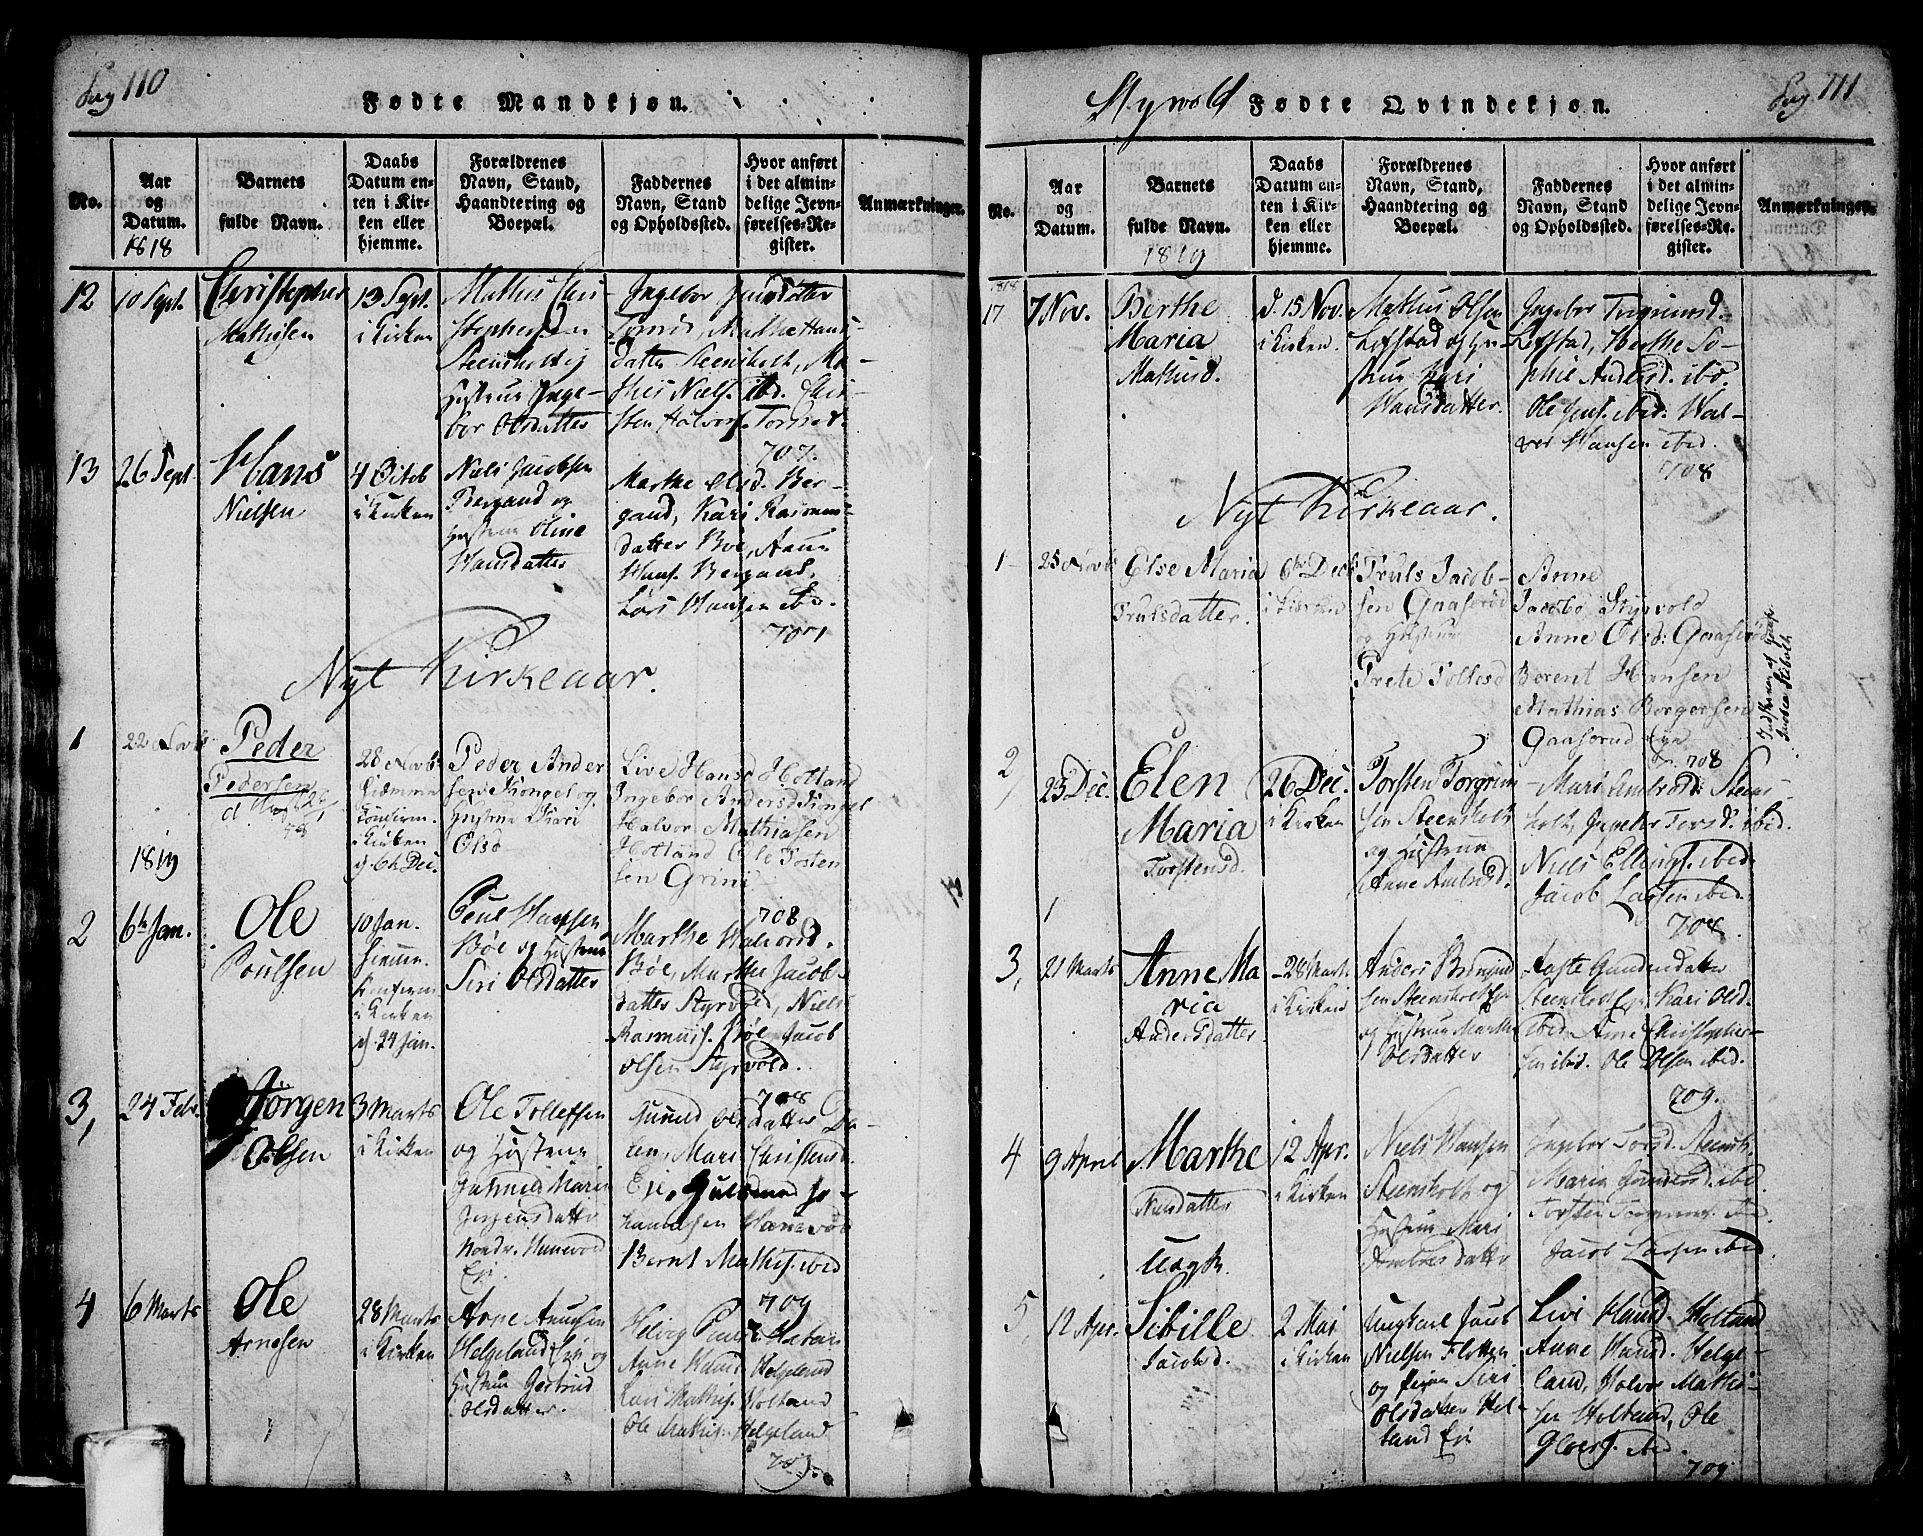 Pag 110
Fødte Mandkjøn.
No.
Aar
og
Datum.
1818
Barnets
fulde Navn.
Daabs
Datum en-
ten i Kir-
ken eller
hjemme.
Forældrenes
Navn, Stand,
Haandtering og
Boepæl.
Faddernes
Navn, Stand
og Opholdssted.
Hvor anført
i det almin-
delige Jevn-
førelses-Re-
gister.
Anmærkninger.
12
10 Sept.
Christopher
Mathisen
13 Sept.
i Kirken
Mathis Chri-
stophersen
Steensholt og
Hustrue Inge-
bor Olsdatter
Ingebor
Marthe Hans-
datter Steensholt, Ma-
this Niels. ibd. Chri-
sten Halvors.
707.
13
26 Sept
Hans
Nielsen
4 Octob
i Kirken
Niels Jacobsen
Bergand og
Hustrue Oline
Hansdatter
Marthe Olsd. Ber-
gand, Kari Rasmus-
datter Boe, Anun
Hans. Bergand,
Lars Hansen ibd.
707
Nyt Kirkeaar.
1
22 Novb
Peder
Pedersen
28 Novb
Hiemme
Confirm.
i Kirken
d. 6te Dec.
Peder Ander
sen Kongel og
Hustrue Kari
Olsd
Live Hansd Holtand
Ingebor Andersd Kongel
Halvor Mathiasen
Holtand Ole Torsten
sen Grini
708
1819
2
6te Jan.
Ole
Poulsen
10 Jan.
Hiemme.
Confirm
i Kirken
d. 24 Jan.
Poul Hansen
Bøe og Hustrue
Siri Olsdatter
Marthe Halvorsd.
Bøe, Marthe Jacob-
datter Styrvold, Niels
Rasmuss. Bøe Jacob
Olsen Styrvold.
708
3,
24 Febr.
Jørgen
Olsen
3 Marts
i Kirken
Ole Tollefsen
og Hustrue
Marie
Jørgensdatter
Nordr. Hanevold
Eie.
Gunild Olsdatter Da-
len, Mari Christensd.
Eie, Gulbrand Jo-
hannesen Hanevold
Bernt Mathis. ibid
709
4
6 Marts
Ole
Arnesen
28 Marts
i Kirken
Arne Anunsen
Helgeland Eie og
Hustrue Gertrud
Olsdatter.
Helvig
Anne Hansd Helgeland
Lars Mathis. Holtand
Ole Mathis. Helgeland
709.
Styrvold Fødte Qvindekjøn.
Pag 111
No.
Aar
og
Datum.
Barnets
fulde Navn.
1819
Daabs
Datum en-
ten i Kir-
ken eller
hjemme.
Forældrenes
Navn, Stand,
Haandtering og
Boepæl.
Faddernes
Navn, Stand
og Opholdssted.
Hvor anført
i det almin-
delige Jevn-
førelses-Re-
gister.
Anmærkninger.
1818
17
7 Nov.
Berthe
Maria
Mathisd.
d. 15 Nov.
i Kirken.
Mathis Olsen
Løfstad og Hu-
strue Kari
Hansdatter.
Ingebor Torgrimsd.
Løfstad, Berthe So-
phie Andersd. ibd.
Ole Jens. ibid. Hal-
vor Hansen ibid.
708
Nyt Kirkeaar.
1
25 Novb
Else Maria
Trulsdatter.
6te Decb
i Kirken
Truls Jacob-
sen Gaaserød
og Hustrue
Grete Tollefsd
Anne
Jacobsd Styrvold
Anne Olsd: Gaaserød
Berent Hansen
Mathias Borgersen
Gaaserud Eye
708
2
23 Dec.
Elen
Maria
Torstensd.
26 Dec.
i Kirken
Torsten Torgrim
sen Steensholt
og Hustrue
Anne Ambrosd.
Mari Ambrosd: Steens-
holt, Ingebor Torsd. ibid.
Niels Ellings. ibid.
Jacob Larsen ibid.
708.
3,
21 Marts
Anne Ma
ria
Andersdatter
28 Mart.
i Kirken
Anders Brynild
sen Steensholt Eie
og Hustrue Marthe
Olsdatter
Aaste Gundersdatter
Steensholt Eye. Kari Olsd.
ibid. Arne Christopher-
sen ibid. Ole Olsen ibid.
709.
4
9 April
Marthe
Nielsdatter
12 Apr.
i Kirken
Niels Hansen
Steensholt og
Hustrue Mari
Ambrosdatter
Ingebor Torsd. Steensh.
Maria Gundersd. ibid.
Torsten ibd.
Jacob Larsen ibid.
5,
12 Apr.
Uægte
Sibille
Jacobsd.
2 Mai
i Kirken
Ungkarl Jacob
Nielsen Flotten
og Pigen Siri
Olsdatter Hol-
tand Eie
Livi Hansd. Holtand
Anne Hansd. Helge-
land, Halvor Mathi-
sen Holtand, Ole
ibid.
709